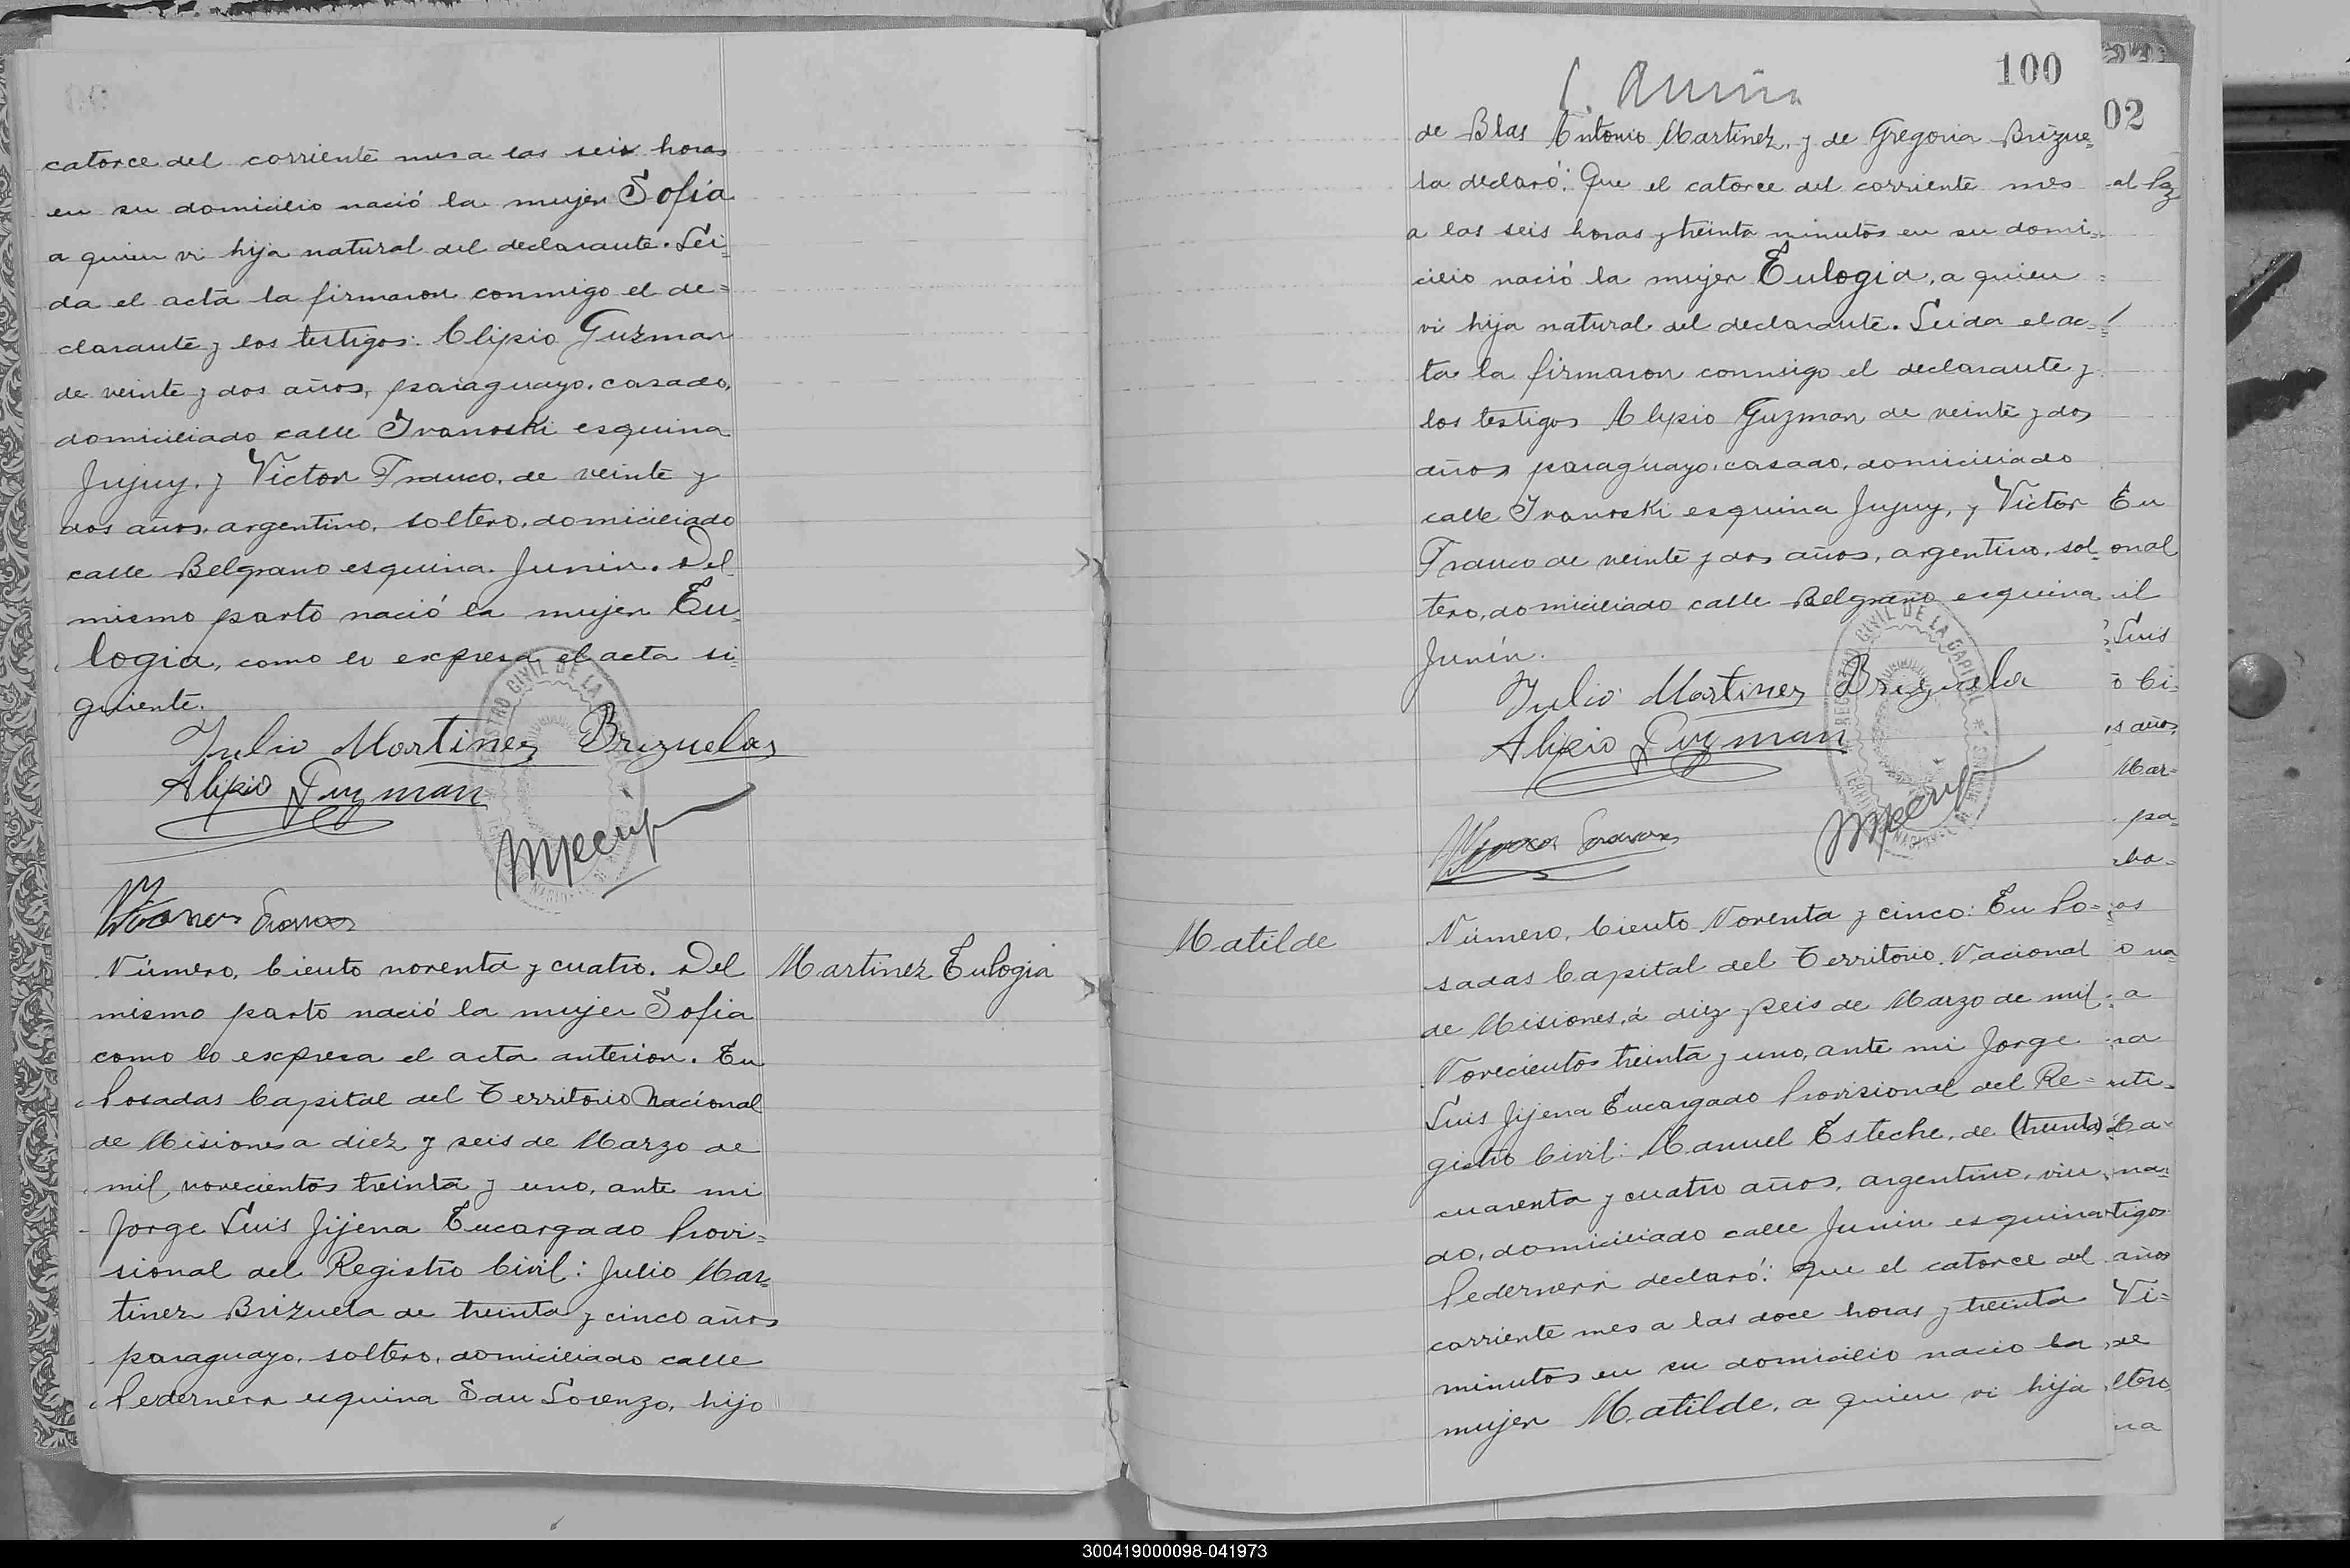 catorce del corriente mes a las seis horas
en su domicilio nació la mujer Sofía
a quien vi hija natural del declarante. Lei=
da el acta la firmaron conmigo el de=
clarante y los testigos: Alipio Guzman
de veinte y dos años, paraguayo, casado,
domiciliado calle Ivanoski esquina
Jujuy, y Victor Franco, de veinte y
dos años, argentino, soltero, domiciliado
calle Belgrano esquina Junin. Del
mismo parto nació la mujer Eu=
logia, como lo expresa el acta si=
guiente.
Julio Martinez Brizuelas
Alipio Guzman
Número, Ciento noventa y cuatro. Del
mismo parto nació la mujer Sofia
como lo expresa el acta anterior. En
Posadas Capital del Territorio Nacional
de Misiones a diez y seis de Marzo de
mil novecientos treinta y uno, ante mi
Jorge Luis Jijena Encargado Provi=
sional del Registro Civil: Julio Mar=
tinez Brizuela de treinta y cinco años
paraguayo, soltero, domiciliado calle
Pedernera esquina San Lorenzo, hijo
Martinez Eulogia
100
de Blas Antonio Martinez, y de Gregoria Brizue=
la declaró: Que el catorce del corriente mes
a las seis horas y treinta minutos en su domi=
cilio nació la mujer Eulogia, a quien
vi hija natural del declarante. Leida el ac=
ta la firmaron conmigo el declarante y
los testigos Alipio Guzman de veinte y dos
años paraguayo, casado, domiciliado
calle Ivanoski esquina Jujuy, y Victor
Franco de veinte y dos años, argentino, sol
tero, domiciliado calle Belgrano esquina
Junín.
REGISTRO CIVIL DE LA CAPITAL
Julio Martinez Brizuela
Alipio Guzman
Matilde
Número, Ciento Noventa y cinco: En Po=
sadas Capital del Territorio Nacional
de Misiones, á diez y seis de Marzo de mil
Novecientos treinta y uno, ante mi Jorge
Luis Jijena Encargado Provisional del Re=
gistro Civil: Manuel Esteche, de (treinta)
cuarenta y cuatro años, argentino, viu
do, domiciliado calle Junin esquina
Pedernera declaró: Que el catorce del
corriente mes a las doce horas y treinta
minutos en su domicilio nacio la
mujer Matilde, a quien vi hija
02
al Paz
En
onal
il
Luis
o Ci=
s años,
Mar=
pa=
as
o na=
a
ra
na=
tigos
años
Vi=
de
ltero,
na
300419000098-041973